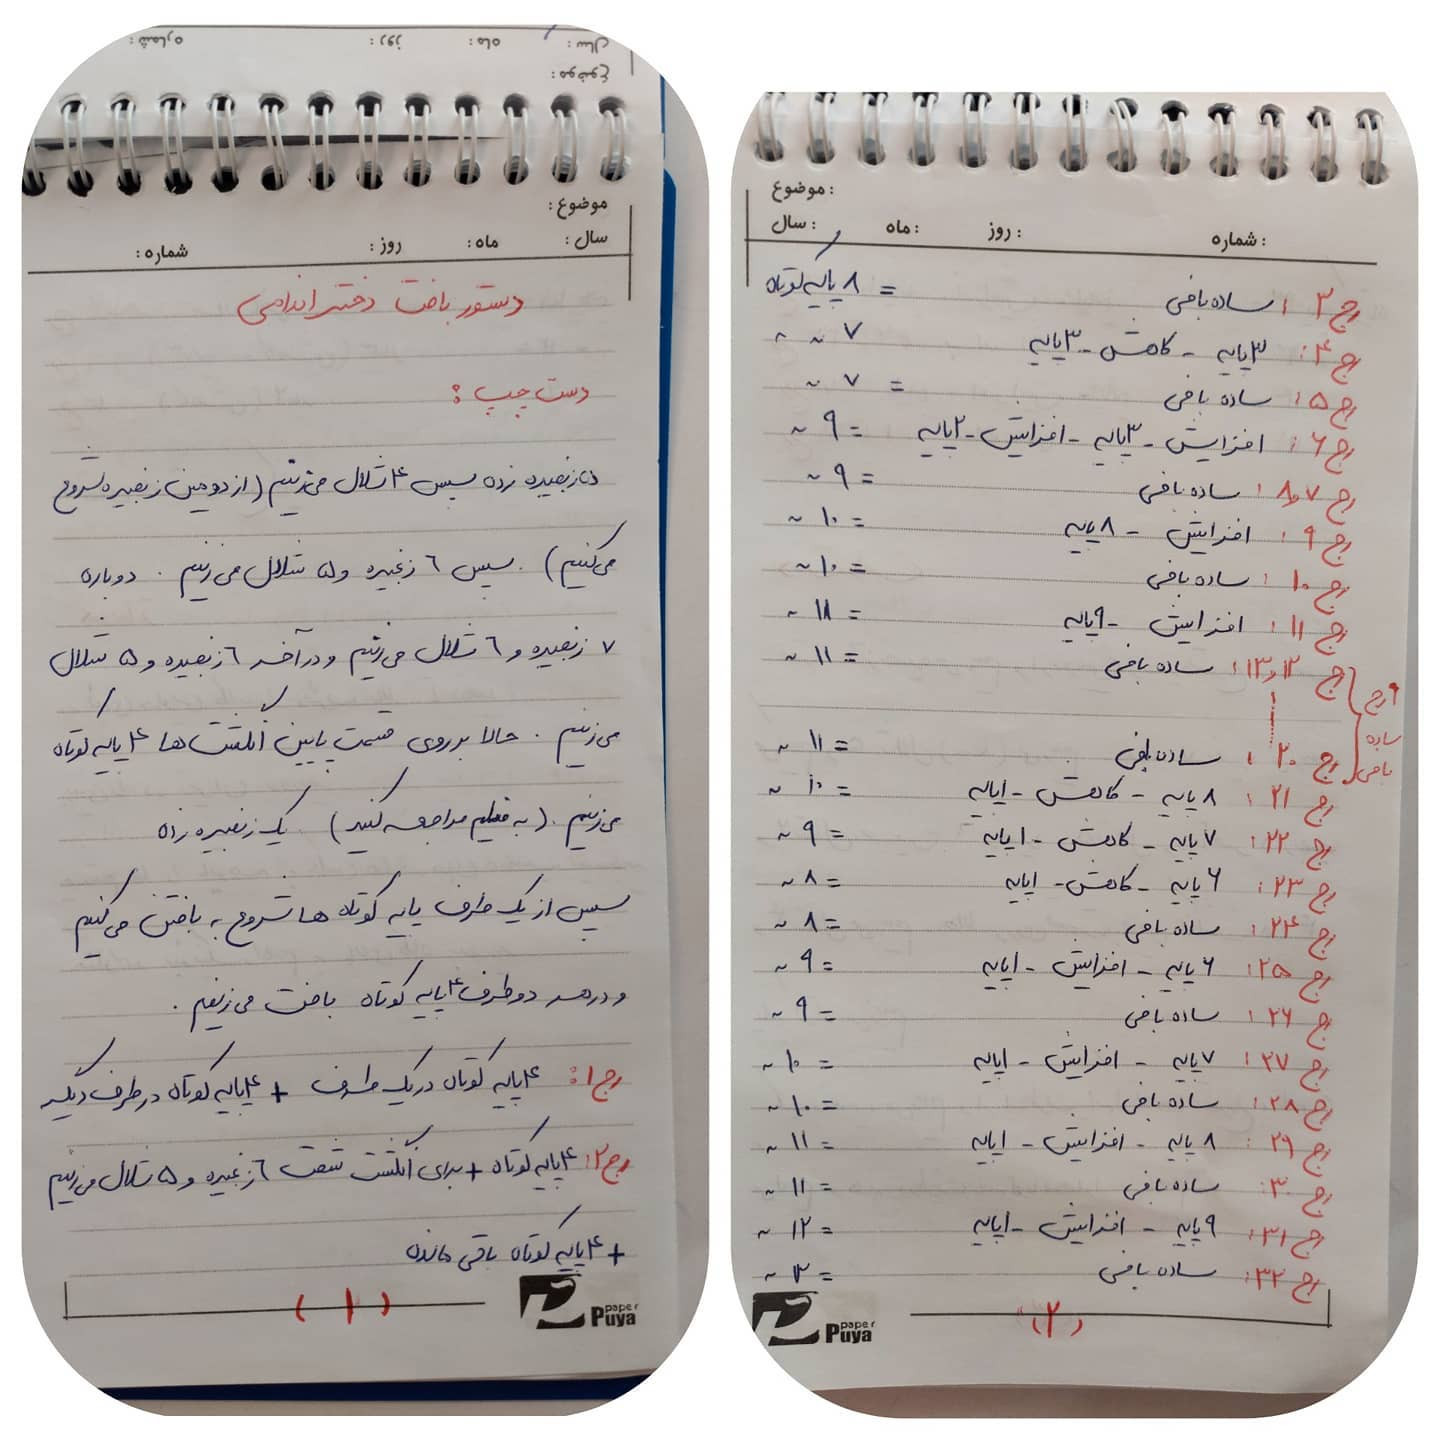 موضوع :
سال : ماه : روز : شماره :
موضوع :
سال : ماه : روز : شماره :
دستور بافت دختر اندامی
دست چپ :
۵ زنجیره زده سپس ۴ شلال می‌زنیم (از دومین زنجیره شروع
می‌کنیم) . سپس ۶ زنجیره و ۵ شلال می‌زنیم . دوباره
۷ زنجیره و ۶ شلال می‌زنیم و در آخر ۶ زنجیره و ۵ شلال
می‌زنیم . حالا بر روی قسمت پایین انگشت ها ۴ پایه کوتاه
می‌زنیم . (به فیلم مراجعه کنید) یک زنجیره زده
سپس از یک طرف پایه کوتاه ها شروع به بافتن می‌کنیم
و در هر دو طرف ۴ پایه کوتاه بافت می‌زنیم .
رج ۱ : ۴ پایه کوتاه در یک طرف + ۴ پایه کوتاه در طرف دیگر
رج ۲ : ۴ پایه کوتاه + برای انگشت شصت ۶ زنجیره و ۵ شلال می‌زنیم
+ ۴ پایه کوتاه باقی مانده
(۱)
paper
Puya
موضوع :
سال : ماه : روز : شماره :
رج ۳ : ساده بافی = ۸ پایه کوتاه
رج ۴ : ۳ پایه - کاهش - ۳ پایه ۷ ~ ~
رج ۵ : ساده بافی = ۷ ~
رج ۶ : افزایش - ۳ پایه - افزایش - ۲ پایه = ۹ ~
رج ۷ و ۸ : ساده بافی = ۹ ~
رج ۹ : افزایش - ۸ پایه = ۱۰ ~
رج ۱۰ : ساده بافی = ۱۰ ~
رج ۱۱ : افزایش - ۹ پایه = ۱۱ ~
رج ۱۲ و ۱۳ : ساده بافی = ۱۱ ~
۹ رج
ساده
بافی
رج ۲۰ : ساده بافی = ۱۱ ~
رج ۲۱ : ۸ پایه - کاهش - ۱ پایه = ۱۰ ~
رج ۲۲ : ۷ پایه - کاهش - ۱ پایه = ۹ ~
رج ۲۳ : ۶ پایه - کاهش - ۱ پایه = ۸ ~
رج ۲۴ : ساده بافی = ۸ ~
رج ۲۵ : ۶ پایه - افزایش - ۱ پایه = ۹ ~
رج ۲۶ : ساده بافی = ۹ ~
رج ۲۷ : ۷ پایه - افزایش - ۱ پایه = ۱۰ ~
رج ۲۸ : ساده بافی = ۱۰ ~
رج ۲۹ : ۸ پایه - افزایش - ۱ پایه = ۱۱ ~
رج ۳۰ : ساده بافی = ۱۱ ~
رج ۳۱ : ۹ پایه - افزایش - ۱ پایه = ۱۲ ~
رج ۳۲ : ساده بافی = ۱۲ ~
(۲)
paper
Puya